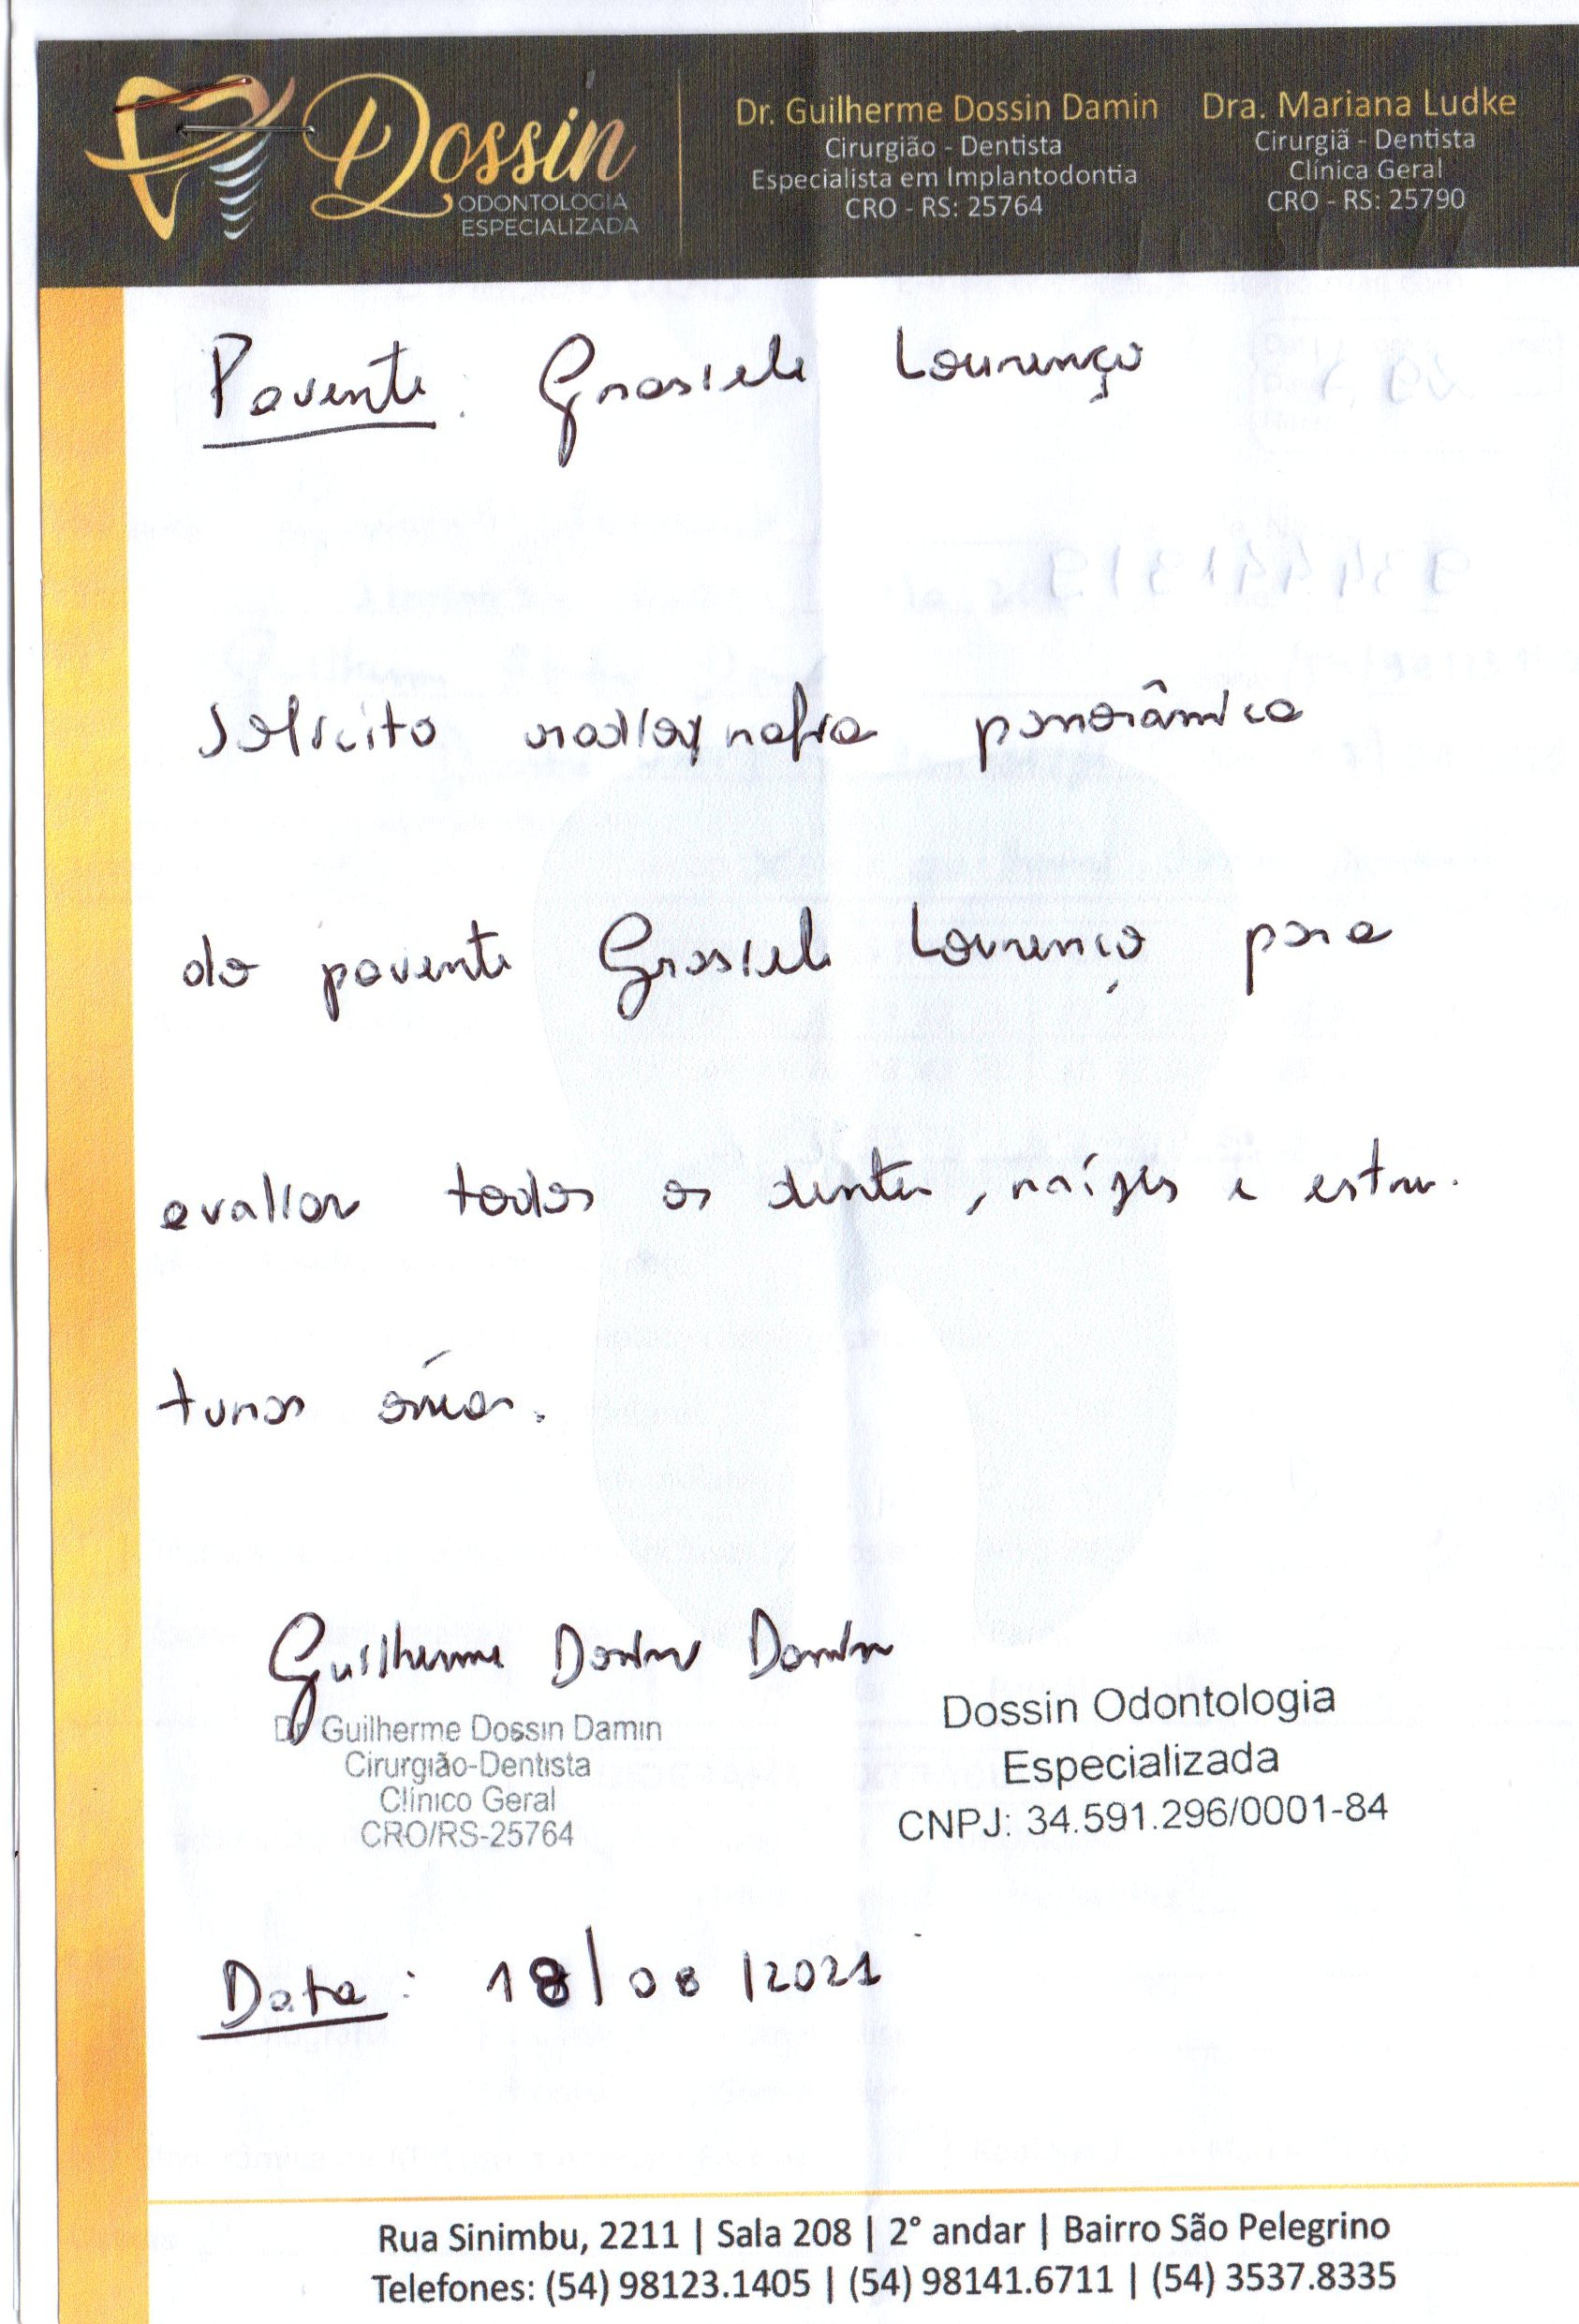 Dossin
ODONTOLOGIA
ESPECIALIZADA
Dr. Guilherme Dossin Damin
Cirurgião - Dentista
Especialista em Implantodontia
CRO - RS: 25764
Dra. Mariana Ludke
Cirurgiã - Dentista
Clínica Geral
CRO - RS: 25790
Paciente: Grasiele Lourenço
Solicito radiografia panorâmica
do paciente Grasiele Lourenço para
avaliar todos os dentes, raízes e estru-
turas ósseas.
Guilherme Dossin Damin
Dr. Guilherme Dossin Damin
Cirurgião-Dentista
Clínico Geral
CRO/RS-25764
Dossin Odontologia
Especializada
CNPJ: 34.591.296/0001-84
Data: 18/08/2021
Rua Sinimbu, 2211 | Sala 208 | 2° andar | Bairro São Pelegrino
Telefones: (54) 98123.1405 | (54) 98141.6711 | (54) 3537.8335